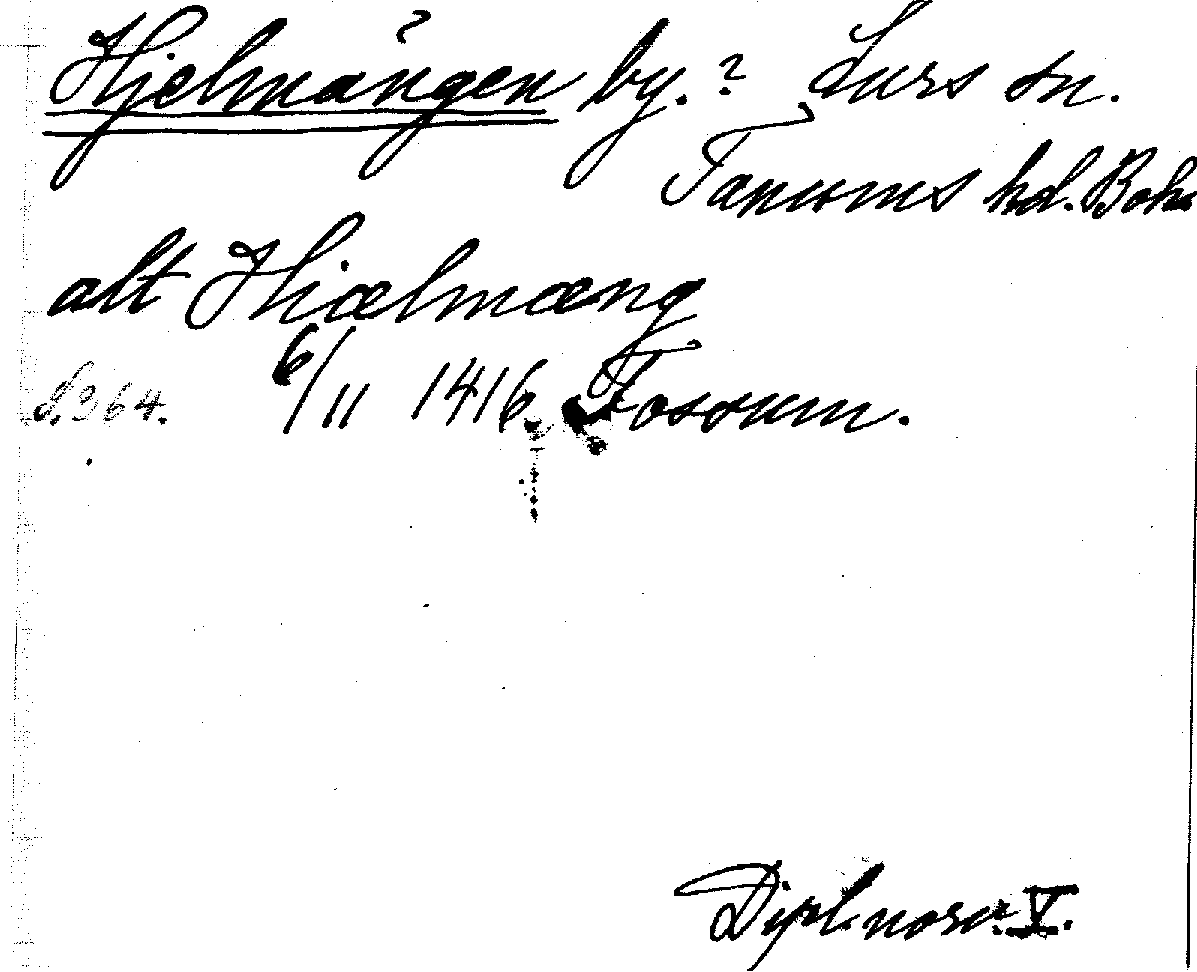 Hjelmängen by.? Lurs sn.
Tanums hd. Bohu
alt Hiælmæng
S. 364. 6/11 1416. Fossum.
Dipl. norv. V.